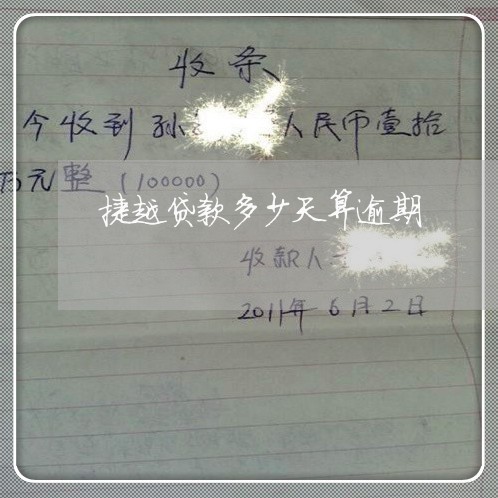 收条
今收到孙 人民币壹拾
万元整（100000）
捷越贷款多少天算逾期
收款人
2011年6月2日